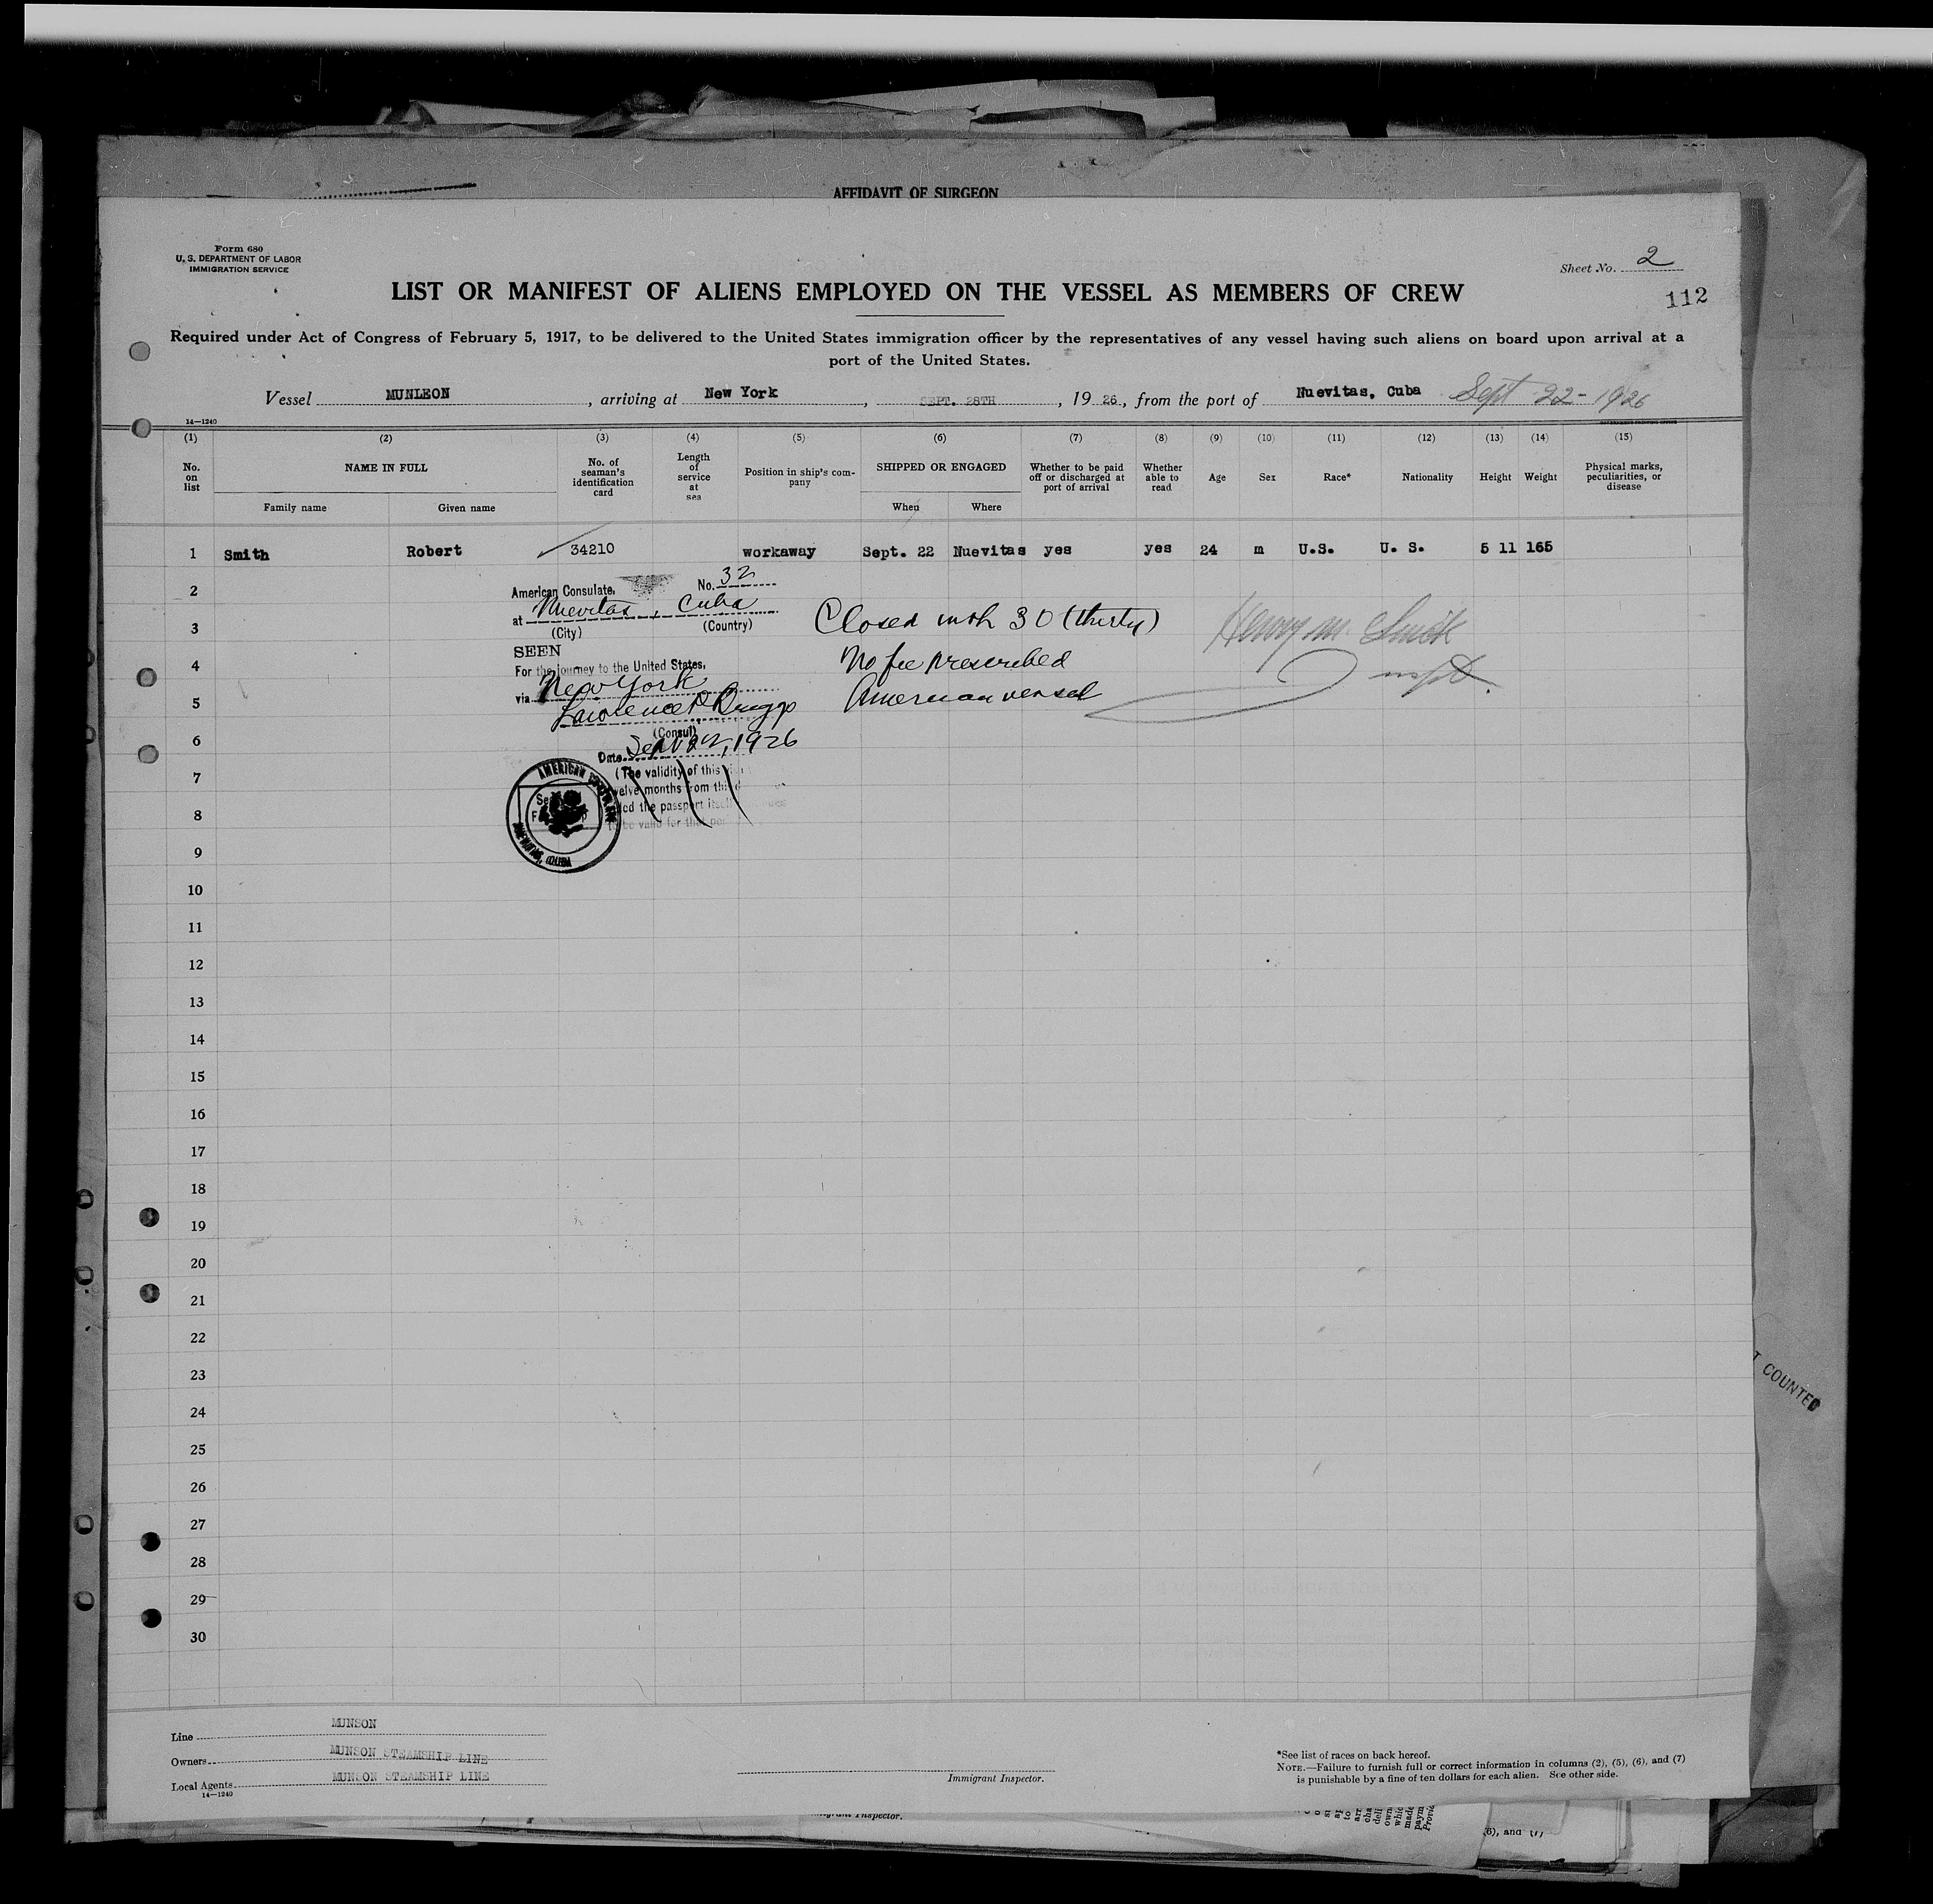 AFFIDAVIT OF SURGEON
Form 680
U. S. DEPARTMENT OF LABOR
IMMIGRATION SERVICE
Sheet No. 2
112
LIST OR MANIFEST OF ALIENS EMPLOYED ON THE VESSEL AS MEMBERS OF CREW
Required under Act of Congress of February 5, 1917, to be delivered to the United States immigration officer by the representatives of any vessel having such aliens on board upon arrival at a
port of the United States.
Vessel MUNLEON, arriving at New York, SEPT. 28TH, 1926, from the port of Nuevitas, Cuba Sept 22-1926
14—1240
(1) (2) (3) (4) (5) (6) (7) (8) (9) (10) (11) (12) (13) (14) (15)
No. on list
NAME IN FULL
Family name Given name
No. of seaman's identification card
Length of service at sea
Position in ship's company
SHIPPED OR ENGAGED
When Where
Whether to be paid off or discharged at port of arrival
Whether able to read
Age Sex Race* Nationality Height Weight
Physical marks, peculiarities, or disease
1 Smith Robert 34210 workaway Sept. 22 Nuevitas yes yes 24 m U.S. U. S. 5 11 165
2
3
4
5
6
7
8
9
10
11
12
13
14
15
16
17
18
19
20
21
22
23
24
25
26
27
28
29
30
American Consulate, No. 32
at Nuevitas, Cuba
(City) (Country)
SEEN
For the journey to the United States,
via New York
Lawrence P Briggs
(Consul)
Date Sept 22, 1926
(The validity of this
twelve months from
the passport itself
to be valid for that
AMERICAN
Closed with 30 (thirty)
No fee prescribed
American vessel
Henry M.
Inspt.
T COUNTED
Line MUNSON
Owners MUNSON STEAMSHIP LINE
Local Agents MUNSON STEAMSHIP LINE
14—1240
Immigrant Inspector.
*See list of races on back hereof.
NOTE.—Failure to furnish full or correct information in columns (2), (5), (6), and (7)
is punishable by a fine of ten dollars for each alien. See other side.
Inspector.
(6), and (7)